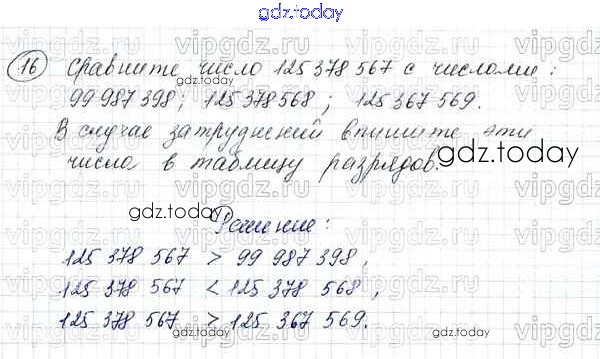 gdz.today
16 Сравните число 125 378 567 с числами:
99 987 398; 125 378 568; 125 367 569.
В случае затруднений впишите эти
числа в таблицу разрядов.
gdz.today
gdz.today
gdz.today
Решение:
125 378 567 > 99 987 398,
125 378 567 < 125 378 568,
125 378 567 > 125 367 569.
gdz.today
vipgdz.com